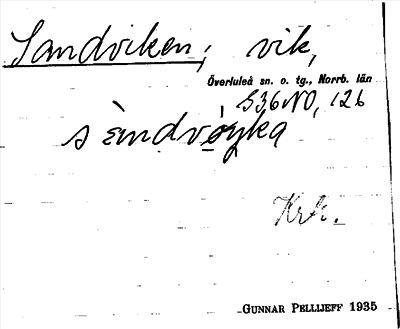 Sandviken, vik,
Överluleå sn. o. tg., Norrb. län
S36NO, 126
sàndvøyka
Krk.
GUNNAR PELLIJEFF 1935